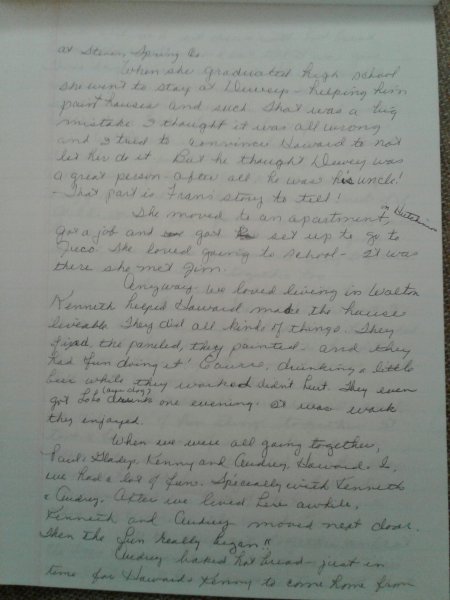 at Steven, Spring Co.
When she graduated high school
she went to stay at Dewey's - helping him
paint houses and such. That was a big
mistake I thought it was all wrong
and I tried to convince Howard to not
let her do it. But he thought Dewey was
a great person - after all he was his uncle!
That part is Fran's story to tell!
She moved to an apartment, in Hutchinson
got a job and got set up to go to
Juco. She loved going to school - It was
there she met Jim.
Anyway, we loved living in Walton
Kenneth helped Howard made the house
liveable. They did all kinds of things. They
fixed the paneled, they painted - and they
had fun doing it! Course, drinking a little
beer while they worked didn't hurt. They even
got Lobo (our dog) drunk one evening. It was work
they enjoyed.
When we were all going together,
Paul & Gladys, Kenny and Audrey, Howard & I,
we had a lot of fun. Specially with Kenneth
& Audrey. After we lived here awhile,
Kenneth and Audrey moved next door.
Then the fun really began!!
Audrey baked hot bread - just in
time for Howard & Kenny to come home from